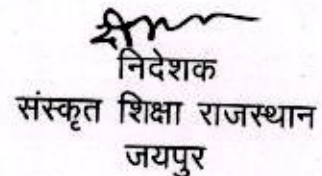 निदेशक
संस्कृत शिक्षा राजस्थान
जयपुर